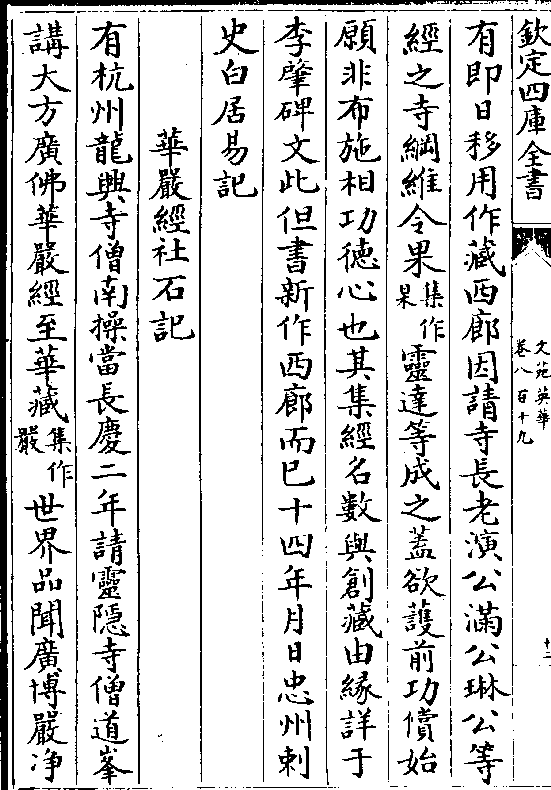 欽定四庫全書
文苑英華
卷八百十九
十二
有即日移用作藏西廊因請寺長老演公滿公琳公等
經之寺綱維令果集作果靈達等成之蓋欲護前功償始
願非布施相功徳心也其集經名數與創藏由緣詳于
李肇碑文此但書新作西廊而已十四年月日忠州刺
史白居易記
華嚴經社石記
有杭州龍興寺僧南操當長慶二年請靈隱寺僧道峯
講大方廣佛華嚴經至華藏集作嚴世界品聞廣博嚴净